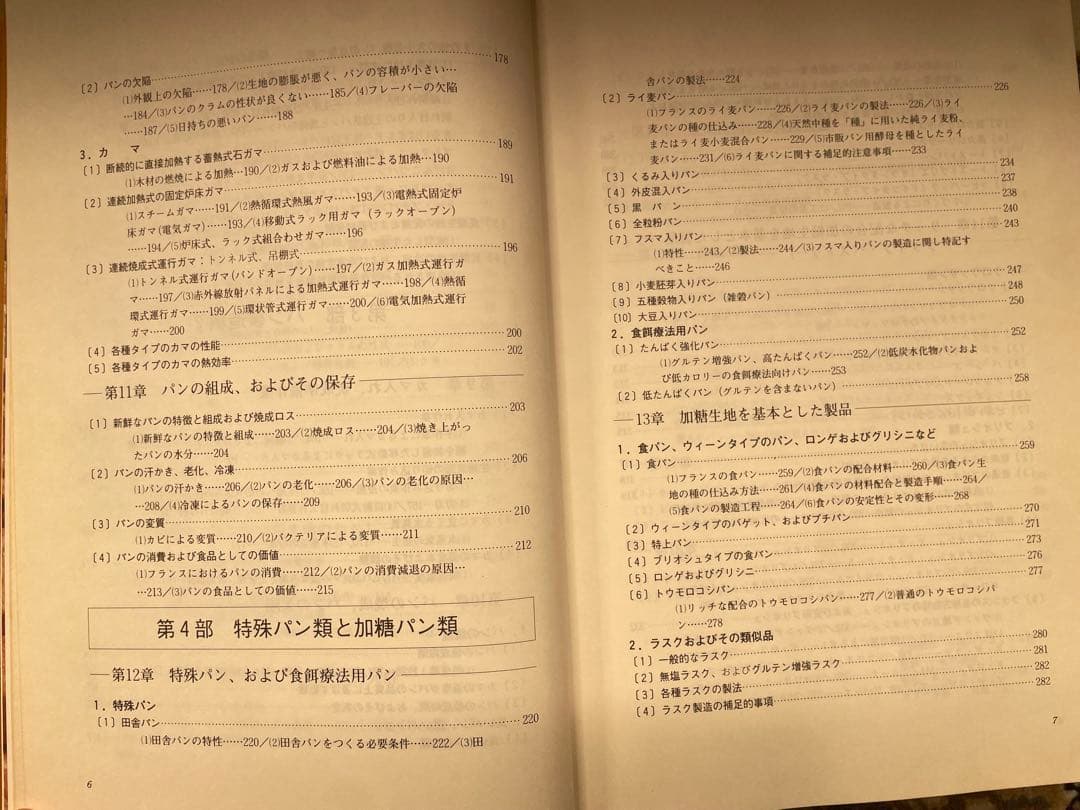 〔2〕パンの欠陥……178
(1)外観上の欠陥……178／(2)生地の膨脹が悪く、パンの容積が小さい…
…184／(3)パンのクラムの性状が良くない……185／(4)フレーバーの欠陥
……187／(5)日持ちの悪いパン……188
3．カ　マ
〔1〕断続的に直接加熱する蓄熱式石ガマ……189
(1)木材の燃焼による加熱…190／(2)ガスおよび燃料油による加熱…190
〔2〕連続加熱式の固定炉床ガマ……191
(1)スチームガマ……191／(2)熱循環式熱風ガマ……193／(3)電熱式固定炉
床ガマ(電気ガマ)……193／(4)移動式ラック用ガマ（ラックオーブン）
……194／(5)炉床式、ラック式組合わせガマ……196
〔3〕連続焼成式運行ガマ：トンネル式、吊棚式……196
(1)トンネル式運行ガマ(バンドオーブン)……197／(2)ガス加熱式運行ガ
マ……197／(3)赤外線放射パネルによる加熱式運行ガマ……198／(4)熱循
環式運行ガマ……199／(5)環状管式運行ガマ……200／(6)電気加熱式運行
ガマ……200
〔4〕各種タイプのカマの性能……200
〔5〕各種タイプのカマの熱効率……202
第11章　パンの組成、およびその保存
〔1〕新鮮なパンの特徴と組成および焼成ロス……203
(1)新鮮なパンの特徴と組成……203／(2)焼成ロス……204／(3)焼き上がっ
たパンの水分……204
〔2〕パンの汗かき、老化、冷凍……206
(1)パンの汗かき……206／(2)パンの老化……206／(3)パンの老化の原因…
…208／(4)冷凍によるパンの保存……209
〔3〕パンの変質……210
(1)カビによる変質……210／(2)バクテリアによる変質……211
〔4〕パンの消費および食品としての価値……212
(1)フランスにおけるパンの消費……212／(2)パンの消費減退の原因…
…213／(3)パンの食品としての価値……215
第4部　特殊パン類と加糖パン類
第12章　特殊パン、および食餌療法用パン
1．特殊パン
〔1〕田舎パン……220
(1)田舎パンの特性……220／(2)田舎パンをつくる必要条件……222／(3)田
6
舎パンの製法……224
〔2〕ライ麦パン……226
(1)フランスのライ麦パン……226／(2)ライ麦パンの製法……226／(3)ライ
麦パンの種の仕込み……228／(4)天然中種を「種」に用いた純ライ麦粉、
またはライ麦小麦混合パン……229／(5)市販パン用酵母を種としたライ
麦パン……231／(6)ライ麦パンに関する補足的注意事項……233
〔3〕くるみ入りパン……234
〔4〕外皮混入パン……237
〔5〕黒　パ　ン……238
〔6〕全粒粉パン……240
〔7〕フスマ入りパン……243
(1)特性……243／(2)製法……244／(3)フスマ入りパンの製造に関し特記す
べきこと……246
〔8〕小麦胚芽入りパン……247
〔9〕五種穀物入りパン（雑穀パン）……248
〔10〕大豆入りパン……250
2．食餌療法用パン
〔1〕たんぱく強化パン……252
(1)グルテン増強パン、高たんぱくパン……252／(2)低炭水化物パンおよ
び低カロリーの食餌療法向けパン……253
〔2〕低たんぱくパン（グルテンを含まないパン）……258
13章　加糖生地を基本とした製品
1．食パン、ウィーンタイプのパン、ロンゲおよびグリシニなど
〔1〕食パン……259
(1)フランスの食パン……259／(2)食パンの配合材料……260／(3)食パン生
地の種の仕込み方法……261／(4)食パンの材料配合と製造手順……264／
(5)食パンの製造工程……264／(6)食パンの安定性とその変形……268
〔2〕ウィーンタイプのバゲット、およびプチパン……270
〔3〕特上パン……271
〔4〕ブリオシュタイプの食パン……273
〔5〕ロンゲおよびグリシニ……276
〔6〕トウモロコシパン……277
(1)リッチな配合のトウモロコシパン……277／(2)普通のトウモロコシパ
ン……278
2．ラスクおよびその類似品
〔1〕一般的なラスク……280
〔2〕無塩ラスク、およびグルテン増強ラスク……281
〔3〕各種ラスクの製法……282
〔4〕ラスク製造の補足的事項……282
7